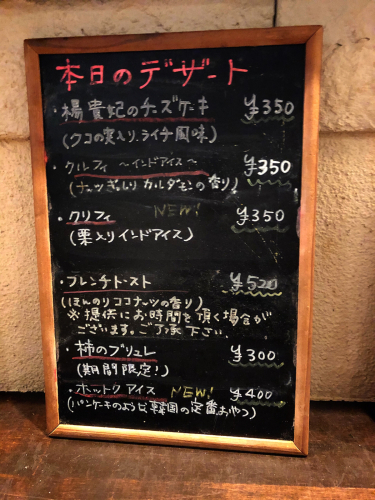 本日のデザート
・楊貴妃のチーズケーキ ¥350
(クコの実入り、ライチ風味)
・クルフィ 〜インドアイス〜 ¥350
(ナッツぎっしりカルダモンの香り)
・クリフィ NEW! ¥350
(栗入りインドアイス)
・フレンチトースト ¥520
(ほんのりココナーツの香り)
※提供にお時間を頂く場合が
ございます。ご了承下さい。
・柿のブリュレ ¥300
(期間限定!)
・ホットクアイス NEW! ¥400
(パンケーキのような韓国の定番おやつ)